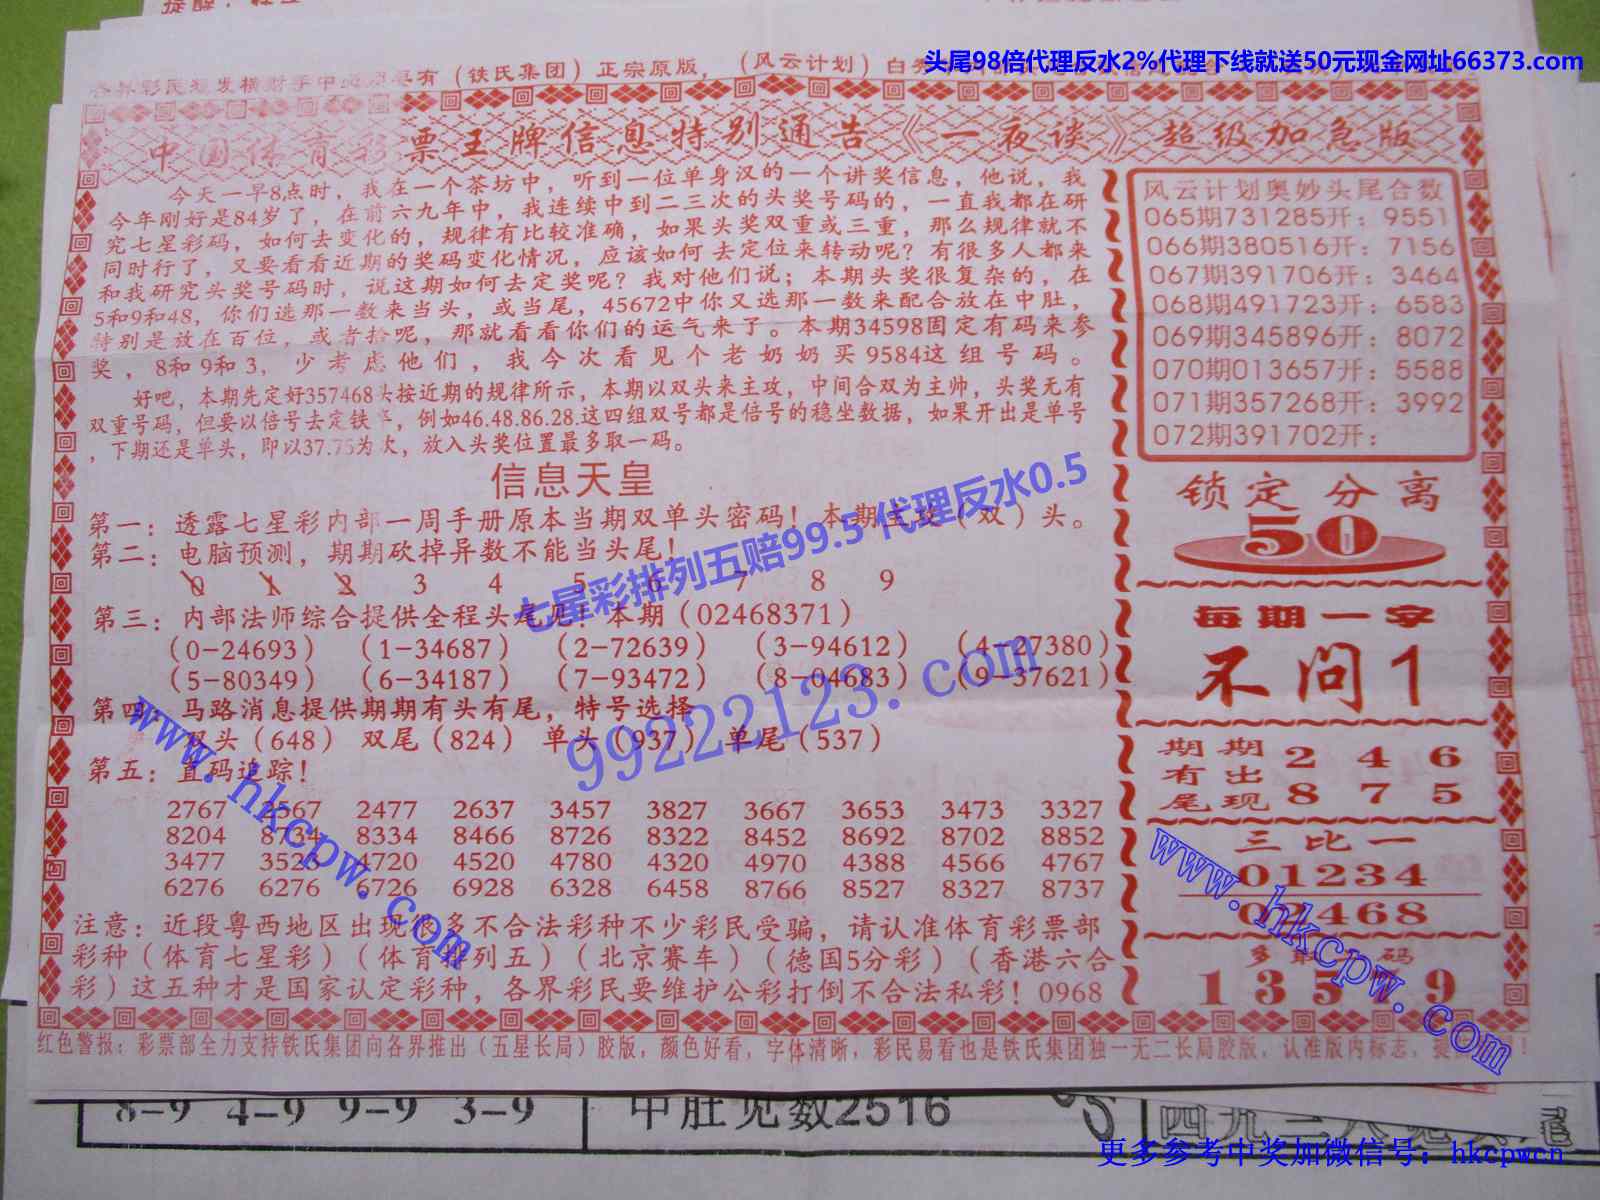 头尾98倍代理反水2%代理下线就送50元现金网址66373.com
各界彩民想发横财手中必须要有（铁氏集团）正宗原版，（风云计划）
中国体育彩票王牌信息特别通告《一夜谈》超级加急版
今天一早8点时，我在一个茶坊中，听到一位单身汉的一个讲奖信息，他说，我
今年刚好是84岁了，在前六九年中，我连续中到二三次的头奖号码的，一直我都在研
究七星彩码，如何去变化的，规律有比较准确，如果头奖双重或三重，那么规律就不
同时行了，又要看看近期的奖码变化情况，应该如何去定位来转动呢？有很多人都来
和我研究头奖号码时，说这期如何去定奖呢？我对他们说；本期头奖很复杂的，在
5和9和48，你们选那一数来当头，或当尾，45672中你又选那一数来配合放在中肚，
特别是放在百位，或者拾呢，那就看看你们的运气来了。本期34598固定有码来参
奖，8和9和3，少考虑他们，我今次看见个老奶奶买9584这组号码。
好吧，本期先定好357468头按近期的规律所示，本期以双头来主攻，中间合双为主帅，头奖无有
双重号码，但要以倍号去定铁率，例如46.48.86.28.这四组双号都是倍号的稳坐数据，如果开出是单号
，下期还是单头，即以37.75为次，放入头奖位置最多取一码。
信息天皇
第一：透露七星彩内部一周手册原本当期双单头密码！本期主攻（双）头。
第二：电脑预测，期期砍掉异数不能当头尾！
0 1 2 3 4 5 6 7 8 9
第三：内部法师综合提供全程头尾见！本期（02468371）
（0-24693） （1-34687） （2-72639） （3-94612） （4-27380）
（5-80349） （6-34187） （7-93472） （8-04683） （9-37621）
第四：马路消息提供期期有头有尾，特号选择
双头（648） 双尾（824） 单头（937） 单尾（537）
第五：直码追踪！
2767 2567 2477 2637 3457 3827 3667 3653 3473 3327
8204 8734 8334 8466 8726 8322 8452 8692 8702 8852
3477 3528 4720 4520 4780 4320 4970 4388 4566 4767
6276 6276 6726 6928 6328 6458 8766 8527 8327 8737
注意：近段粤西地区出现很多不合法彩种不少彩民受骗，请认准体育彩票部
彩种（体育七星彩）（体育排列五）（北京赛车）（德国5分彩）（香港六合
彩）这五种才是国家认定彩种，各界彩民要维护公彩打倒不合法私彩！0968
风云计划奥妙头尾合数
065期731285开：9551
066期380516开：7156
067期391706开：3464
068期491723开：6583
069期345896开：8072
070期013657开：5588
071期357268开：3992
072期391702开：
锁定分离
50
每期一字
不问1
期期 2 4 6
有出
尾现 8 7 5
三比一
01234
02468
多 码
1 3 5 9
红色警报：彩票部全力支持铁氏集团向各界推出（五星长局）胶版，颜色好看，字体清晰，彩民易看也是铁氏集团独一无二长局胶版，认准版内标志，提
七星彩排列五赔99.5 代理反水0.5
99222123.com
www.hkcpw.com
www.hkcpw.com
8-9 4-9 9-9 3-9
中肚见数2516
更多参考中奖加微信号：hkcpwcn